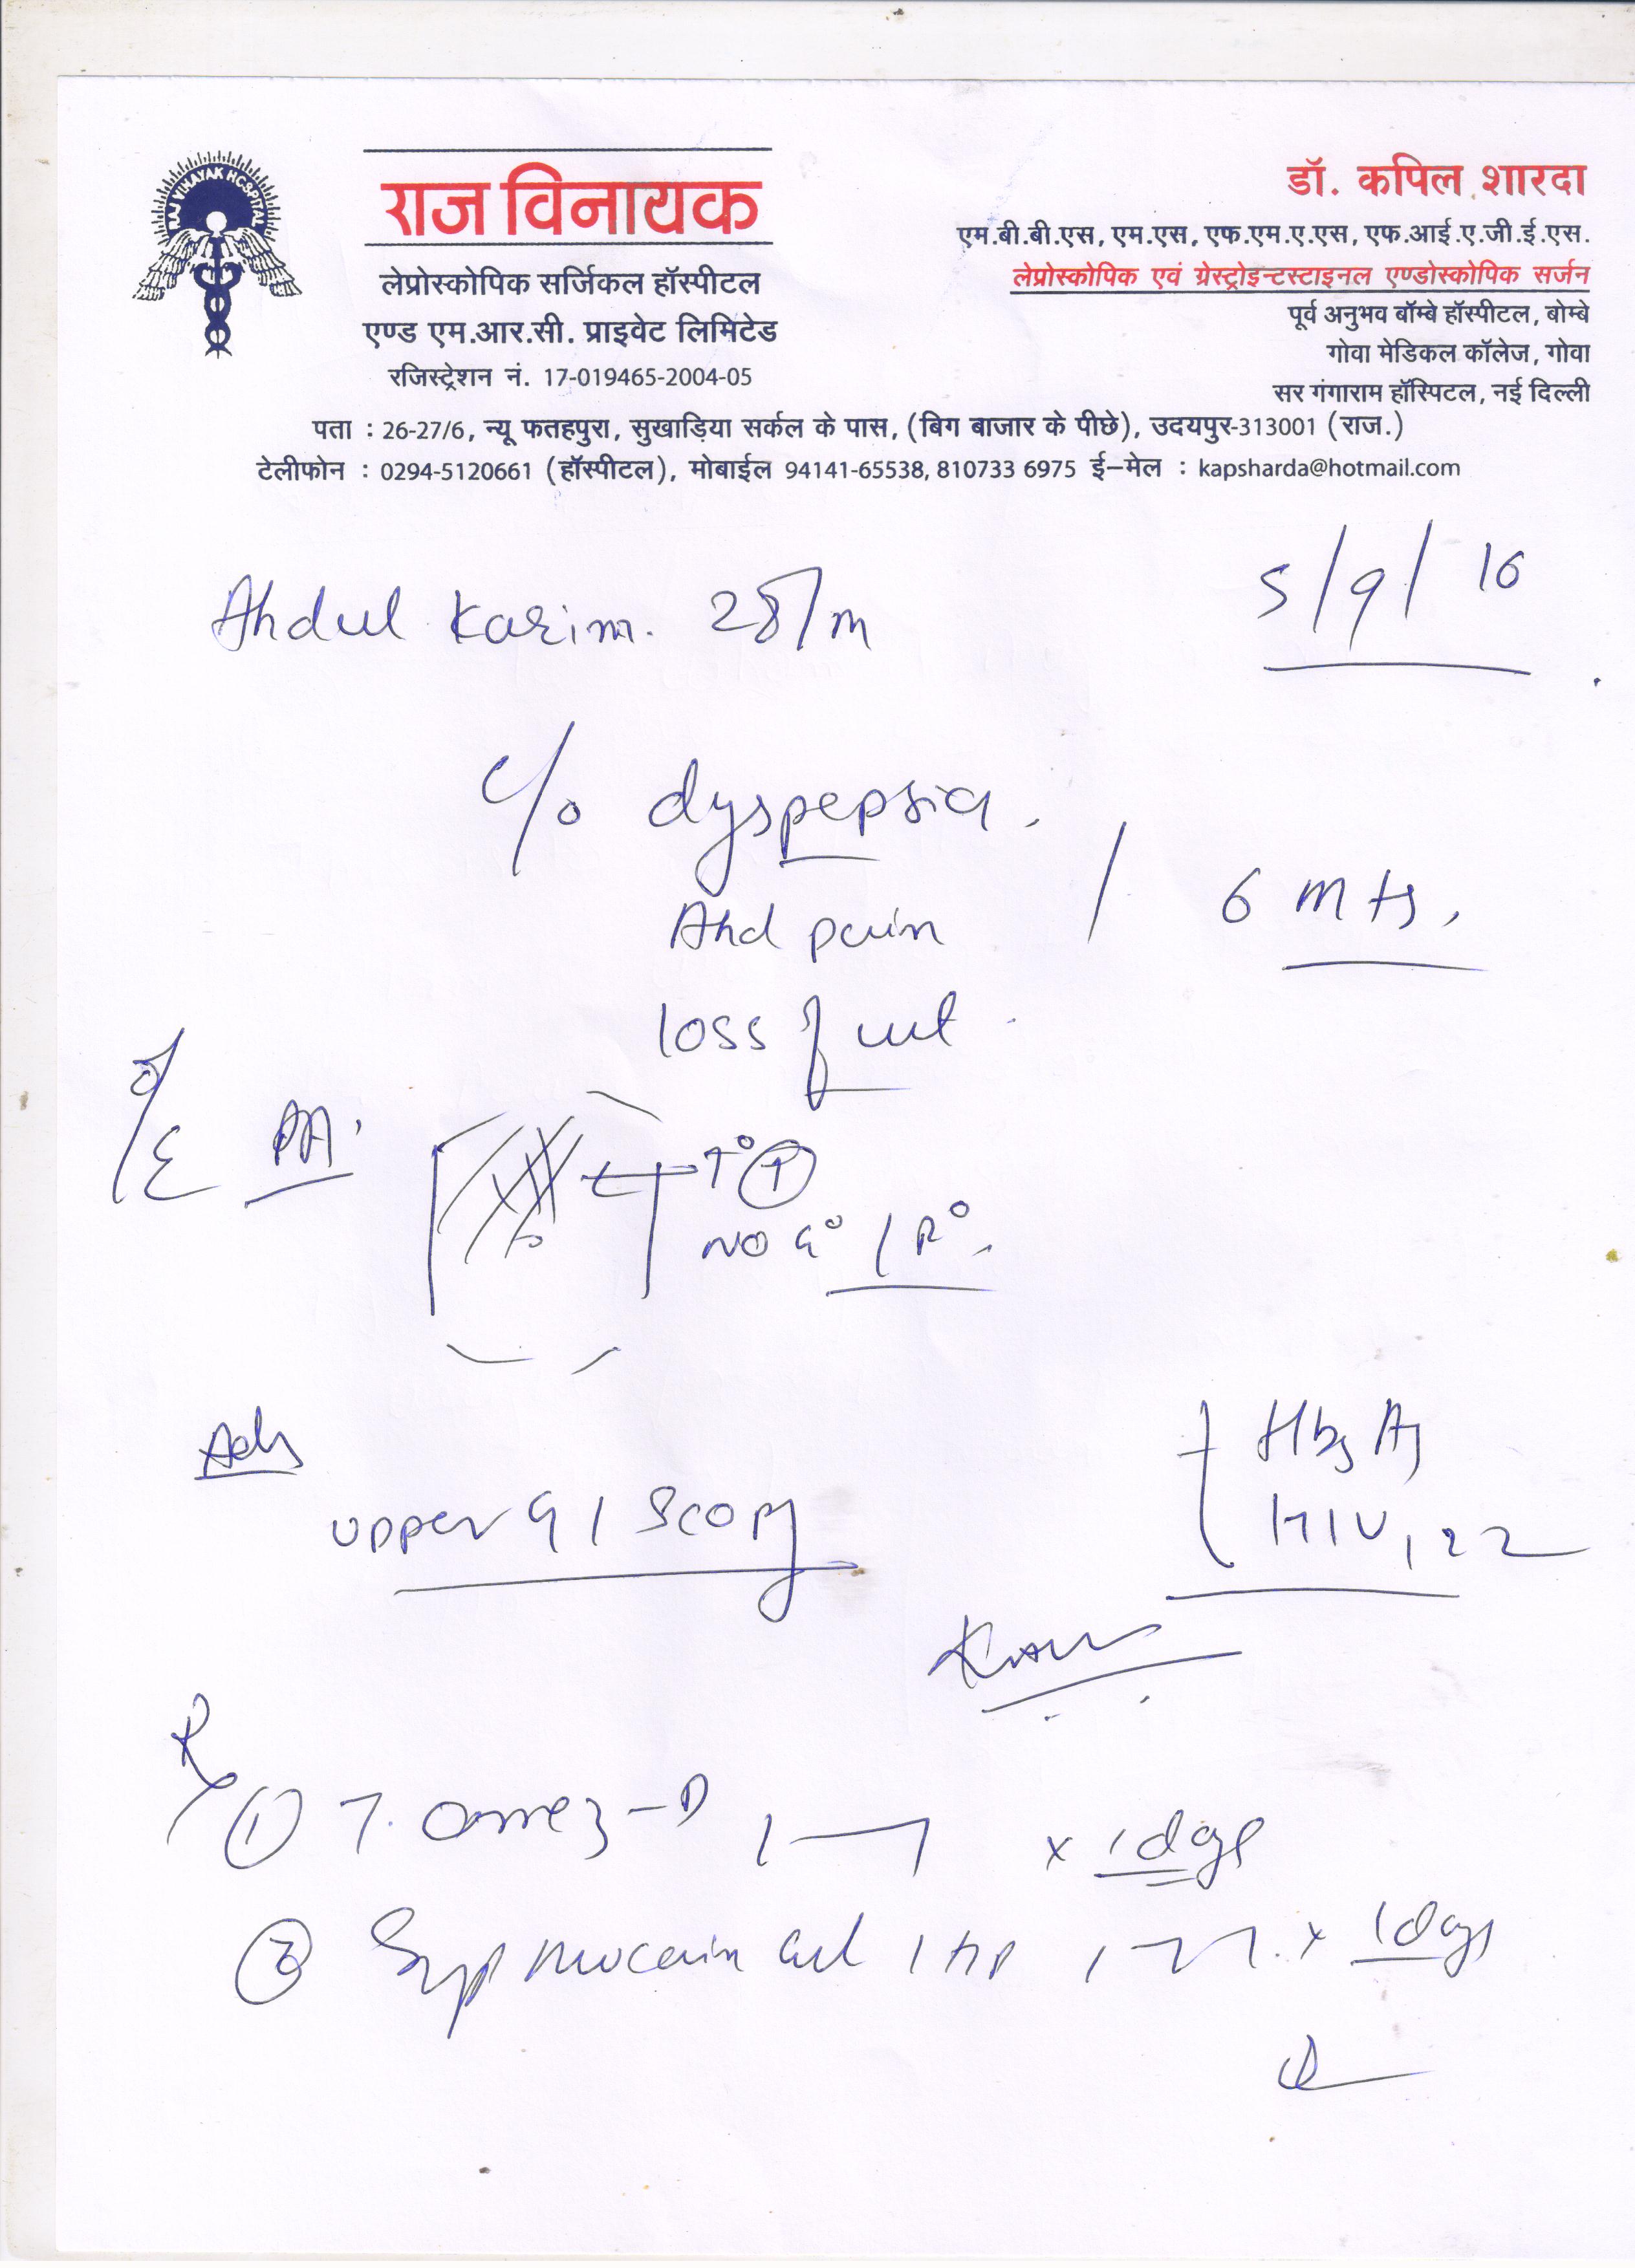 RAJ VINAYAK HOSPITAL
राज विनायक
लेप्रोस्कोपिक सर्जिकल हॉस्पीटल
एण्ड एम.आर.सी. प्राइवेट लिमिटेड
रजिस्ट्रेशन नं. 17-019465-2004-05
डॉ. कपिल शारदा
एम.बी.बी.एस, एम.एस, एफ.एम.ए.एस, एफ.आई.ए.जी.ई.एस.
लेप्रोस्कोपिक एवं ग्रेस्ट्रोइन्टस्टाइनल एण्डोस्कोपिक सर्जन
पूर्व अनुभव बॉम्बे हॉस्पीटल, बोम्बे
गोवा मेडिकल कॉलेज, गोवा
सर गंगाराम हॉस्पिटल, नई दिल्ली
पता : 26-27/6, न्यू फतहपुरा, सुखाड़िया सर्कल के पास, (बिग बाजार के पीछे), उदयपुर-313001 (राज.)
टेलीफोन : 0294-5120661 (हॉस्पीटल), मोबाईल 94141-65538, 810733 6975 ई-मेल : kapsharda@hotmail.com
5/9/16
Abdul Karim. 28/m
c/o dyspepsia.
Abd pain / 6 mts.
loss of wt.
O/E PA.
T° +
NO G° / R°.
Adv
HbsAg
upper GI Scopy
HIV 1 2 2
Rx
① T. Omez-D 1—1 x 1 days
② Syp Mucain Gel x 1 days